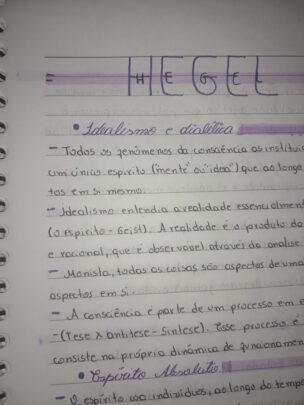 HEGEL
• Idealismo e dialética
- Todos os fenômenos da consciência as institui
um único espírito (mente ou "ideia") que ao longo
tos em si mesmo.
- Idealismo entendia a realidade essencialment
(o espírito - Geist). A realidade é o produto do
e racional, que é observável através da analise
- Monista, todas as coisas são aspectos de uma
aspectos em si.
- A consciência é parte de um processo em
-(Tese x antitese - Sintese). Esse processo é
consiste na própria dinâmica de funcionamen
• Espírito Absoluto
- O espírito indivíduos, ao longo do tempo